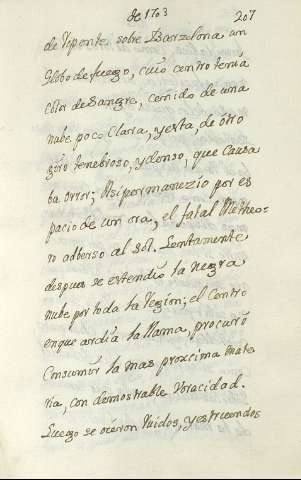 de 1703 207
de repente sobre Barzelona un
Globo de fuego, cuio centro tenia
Color de Sangre, ceñido de una
nube poco Clara, y esta, de otro
giro tenebroso, y denso, que Causa
ba orror; Asi permanezio por es
pacio de un ora, el fatal Metheo-
ro adberso al Sol. Lentamente
despues se estendio la negra
nube por toda la region; el Centro
en que ardia la llama, procuró
Consumir la mas proxima mate
ria, con demostrable Voracidad.
Luego se oieron ruidos, y estruendos